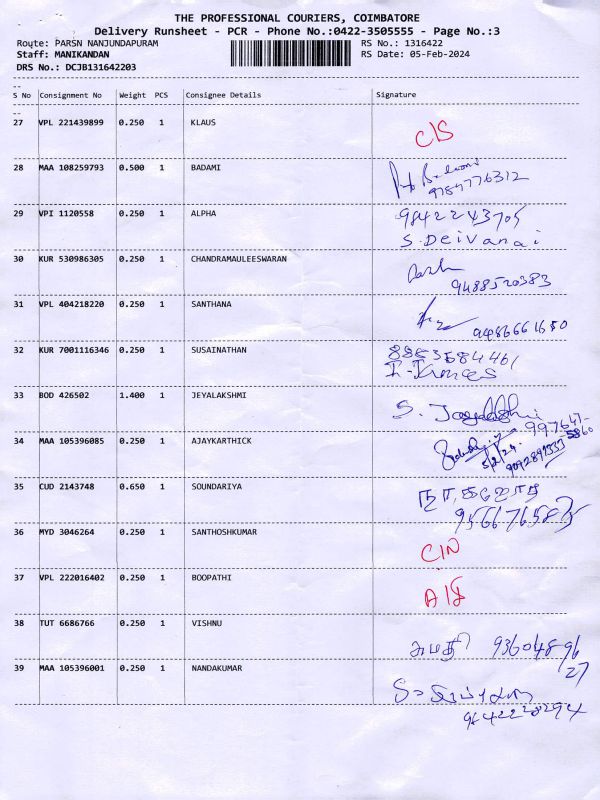 THE PROFESSIONAL COURIERS, COIMBATORE
Delivery Runsheet - PCR - Phone No.:0422-3505555 - Page No.:3
Route: PARSN NANJUNDAPURAM RS No.: 1316422
Staff: MANIKANDAN RS Date: 05-Feb-2024
DRS No.: DCJB131642203
S No Consignment No Weight PCS Consignee Details Signature
27 VPL 221439899 0.250 1 KLAUS
28 MAA 108259793 0.500 1 BADAMI
9789776312
29 VPI 1120558 0.250 1 ALPHA 9842243705
S. Deivanai
30 KUR 530986305 0.250 1 CHANDRAMAULEESWARAN
9488520383
31 VPL 404218220 0.250 1 SANTHANA
9486661650
32 KUR 7001116346 0.250 1 SUSAINATHAN 8883684461
33 BOD 426502 1.400 1 JEYALAKSHMI
34 MAA 105396085 0.250 1 AJAYKARTHICK
5/2/24
35 CUD 2143748 0.650 1 SOUNDARIYA
36 MYD 3046264 0.250 1 SANTHOSHKUMAR
C/N
37 VPL 222016402 0.250 1 BOOPATHI
38 TUT 6686766 0.250 1 VISHNU
சுமதி 9360489627
39 MAA 105396001 0.250 1 NANDAKUMAR
9842228294